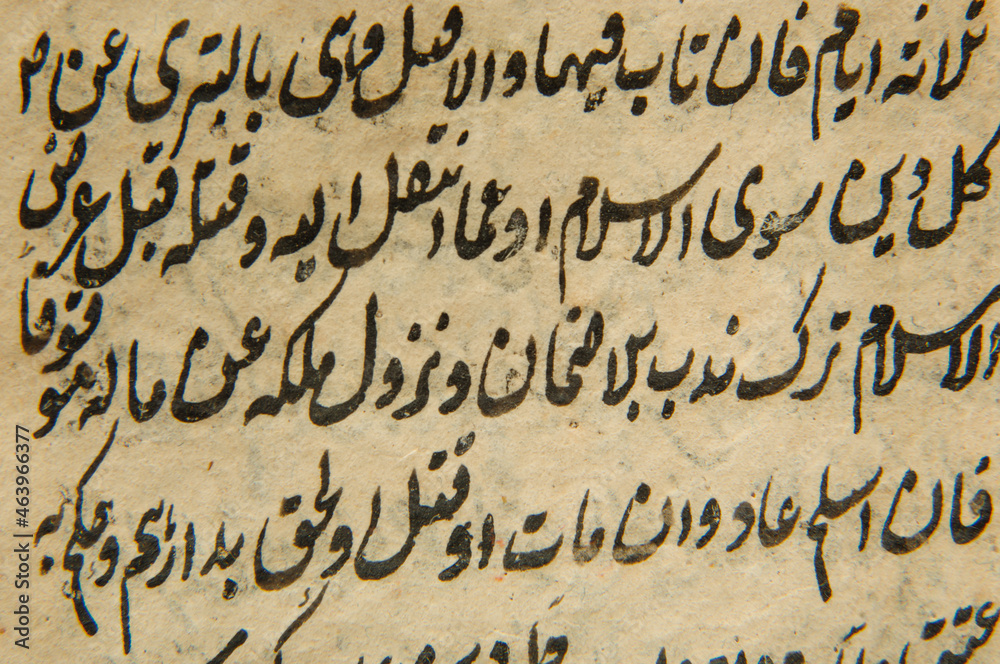 ثلاثة ايام فان تاب فيها والا قتل وهى بالتبرى عن
كل دين سوى الاسلام او عما انتقل اليه وقتله قبل عرض
الاسلام ترك ندب بلا ضمان ونزول ملكه عن ماله موقوفا
فان اسلم عاد وان مات او قتل او لحق بدارهم وحكم به
Adobe Stock | #463966377